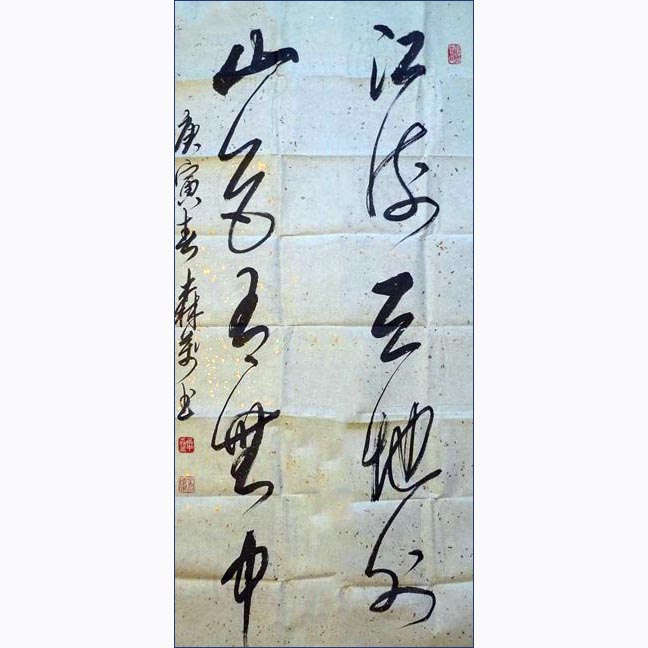 江流天地外
山色有無中
庚寅春森萬書